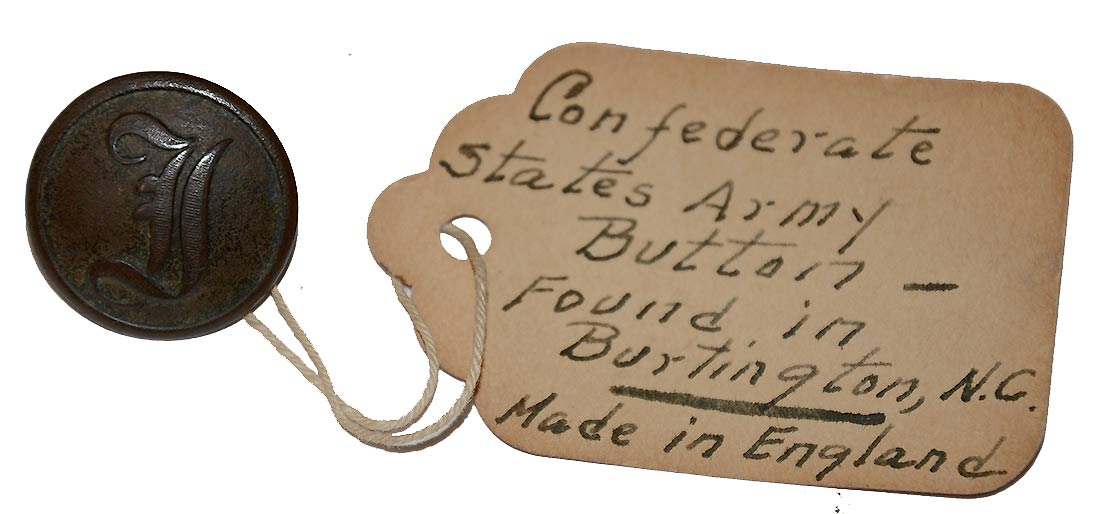 I
Confederate
States Army
Button —
Found in
Burtington, N.C.
Made in England